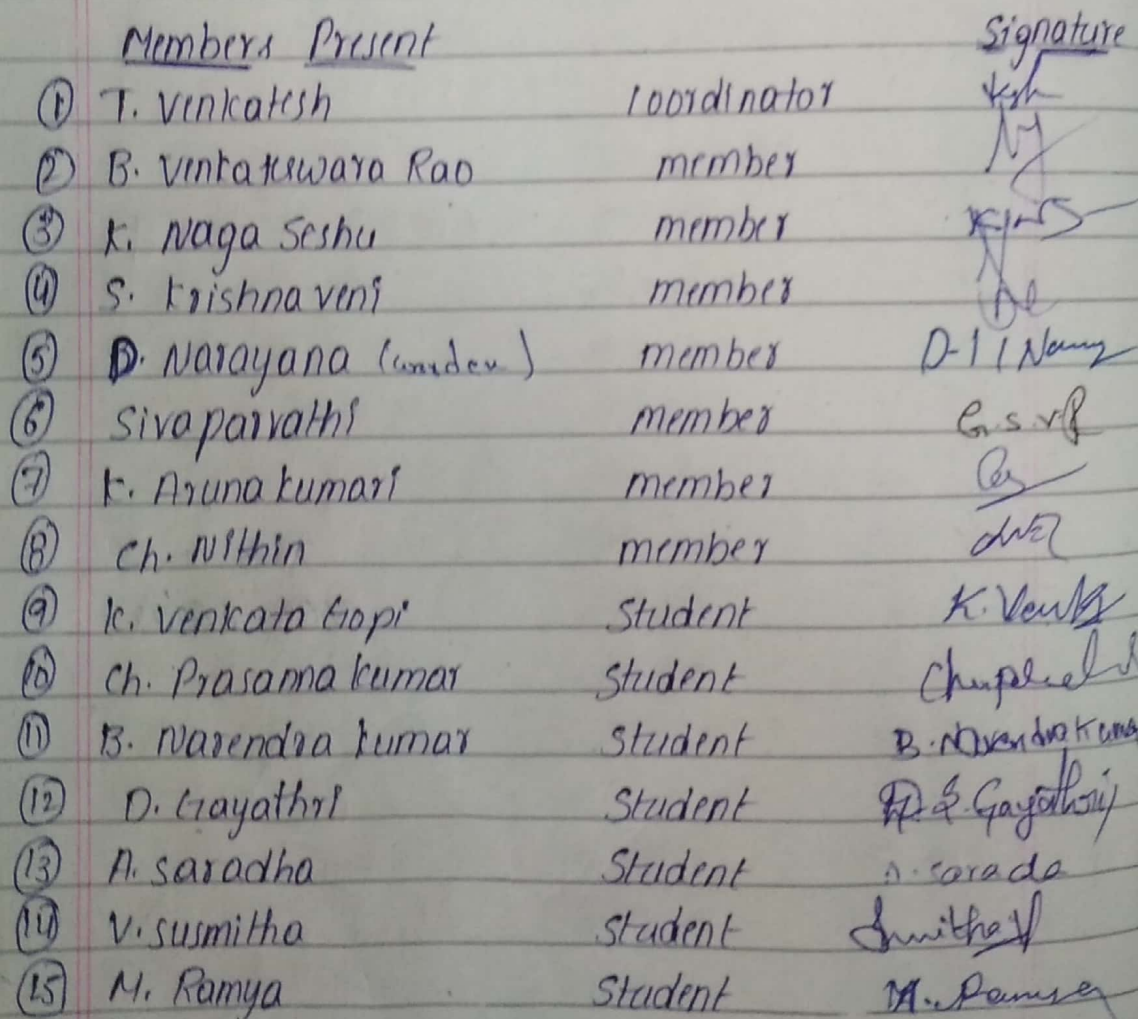 Members Present Signature
① T. Venkatesh coordinator
② B. Venkateswara Rao member
③ K. Naga Seshu member
④ S. Krishna veni member
⑤ D. Narayana member
⑥ Sivaparvathi member
⑦ K. Aruna kumari member
⑧ Ch. Nithin member
⑨ K. Venkata Gopi Student K.
⑩ Ch. Prasanna kumar Student
⑪ B. Narendra kumar Student B. Narendra Kumar
⑫ D. Gayathri Student Gayathri
⑬ A. Saradha Student A. Sarada
⑭ V. Susmitha Student
⑮ M. Ramya Student M. Ramya